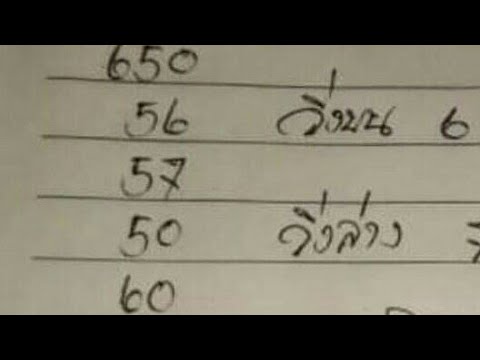 650
56 วิ่งบน 6
57
50 วิ่งล่าง
60